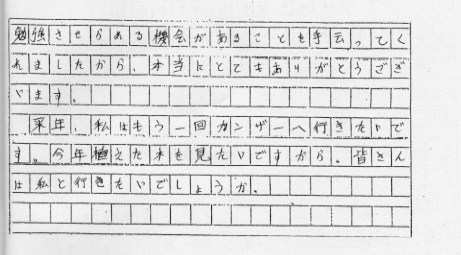 勉強させられる機会があることを手伝ってく
れましたから、本当にとてもありがとうござ
います。
来年、私はもう一回カンザーへ行きたいで
す。今年植えた木を見たいですから。皆さん
は私と行きたいでしょうか。